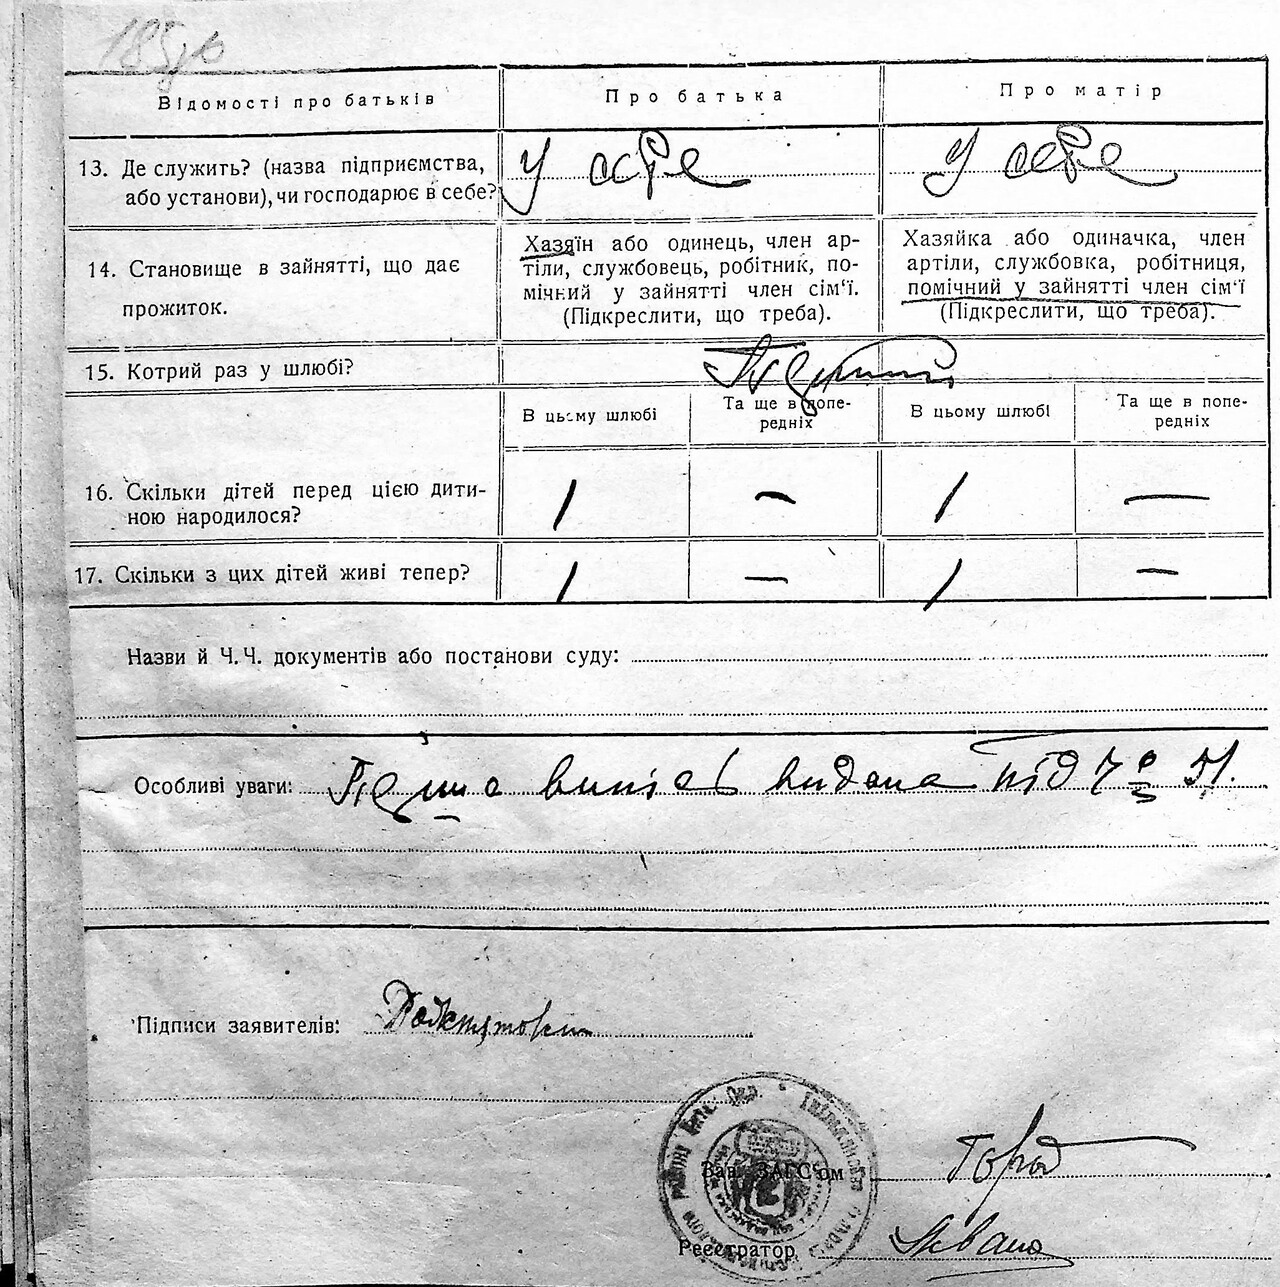 185
Відомості про батьків
Про батька
Про матір
13. Де служить? (назва підприємства,
або установи), чи господарює в себе?
У себе
У себе
14. Становище в зайнятті, що дає
прожиток.
Хазяїн або одинець, член ар-
тілі, службовець, робітник, по-
мічний у зайнятті член сім'ї.
(Підкреслити, що треба).
Хазяйка або одиначка, член
артілі, службовка, робітниця,
помічний у зайнятті член сім'ї
(Підкреслити, що треба).
15. Котрий раз у шлюбі?
В цьому шлюбі
Та ще в попе-
редніх
В цьому шлюбі
Та ще в попе-
редніх
16. Скільки дітей перед цією дити-
ною народилося?
1 — 1 —
17. Скільки з цих дітей живі тепер?
1 — 1 —
Назви й Ч.Ч. документів або постанови суду:
Особливі уваги: видана під Ч
Підписи заявителів:
Зав. ЗАГС'ом
Реєстратор